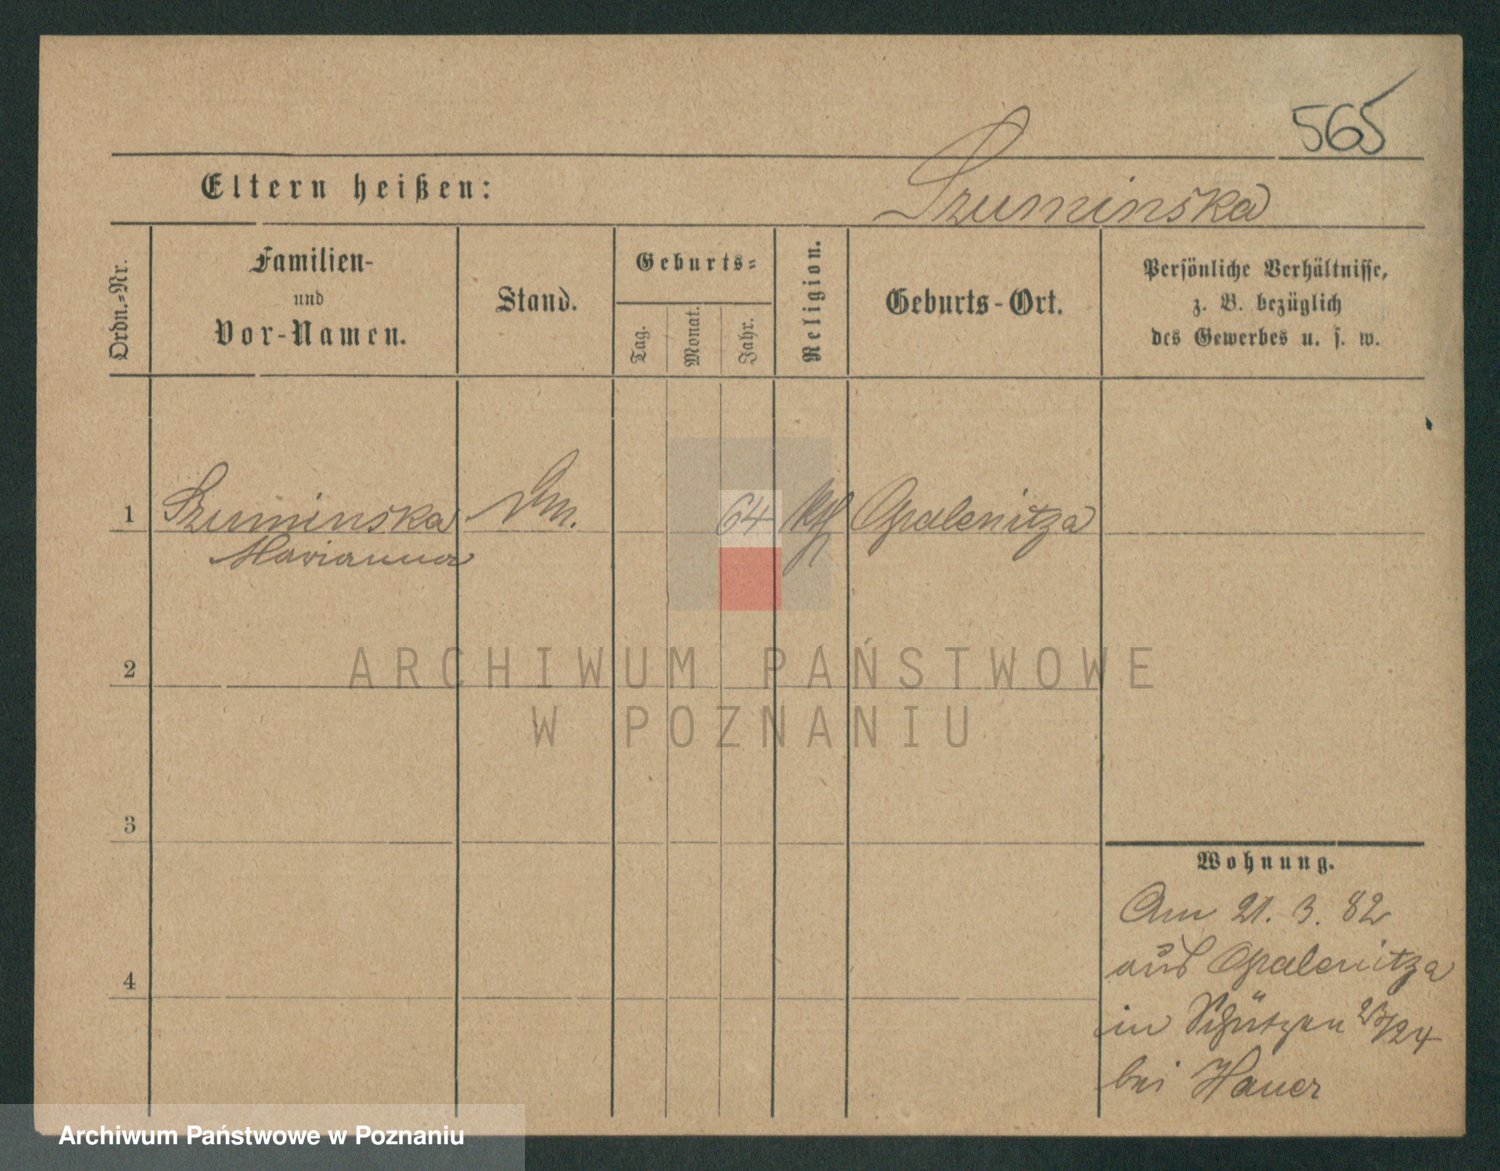 565
Eltern heißen:
Szuminska
Ordn.-Nr.
Familien-
und
Vor-Namen.
Stand.
Geburts-
Tag.
Monat.
Jahr.
Religion.
Geburts-Ort.
Persönliche Verhältnisse,
z. B. bezüglich
des Gewerbes u. s. w.
1 Szuminska 64 Opalenitza
Marianna
2
ARCHIWUM PAŃSTWOWE
W POZNANIU
3
Wohnung.
Am 21. 3. 82
aus Opalenitza
4
in Schützen 23/24
bei Hauer
Archiwum Państwowe w Poznaniu